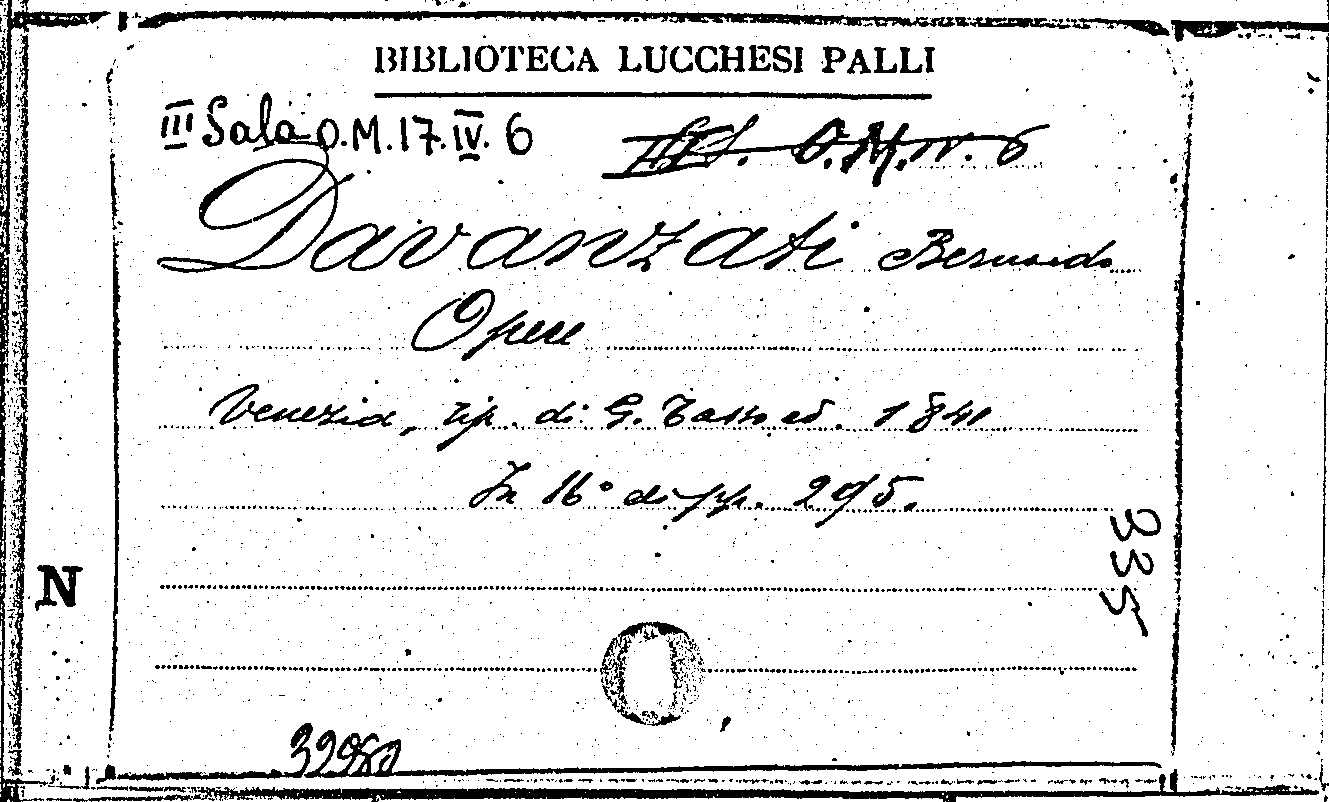 BIBLIOTECA LUCCHESI PALLI
III Sala O.M.17.IV.6
III S. O.M.IV.6
Davanzati Bernardo
Opere
Venezia, tip. di G. Tasso ed. 1841
In 16° di pp. 295.
335
N